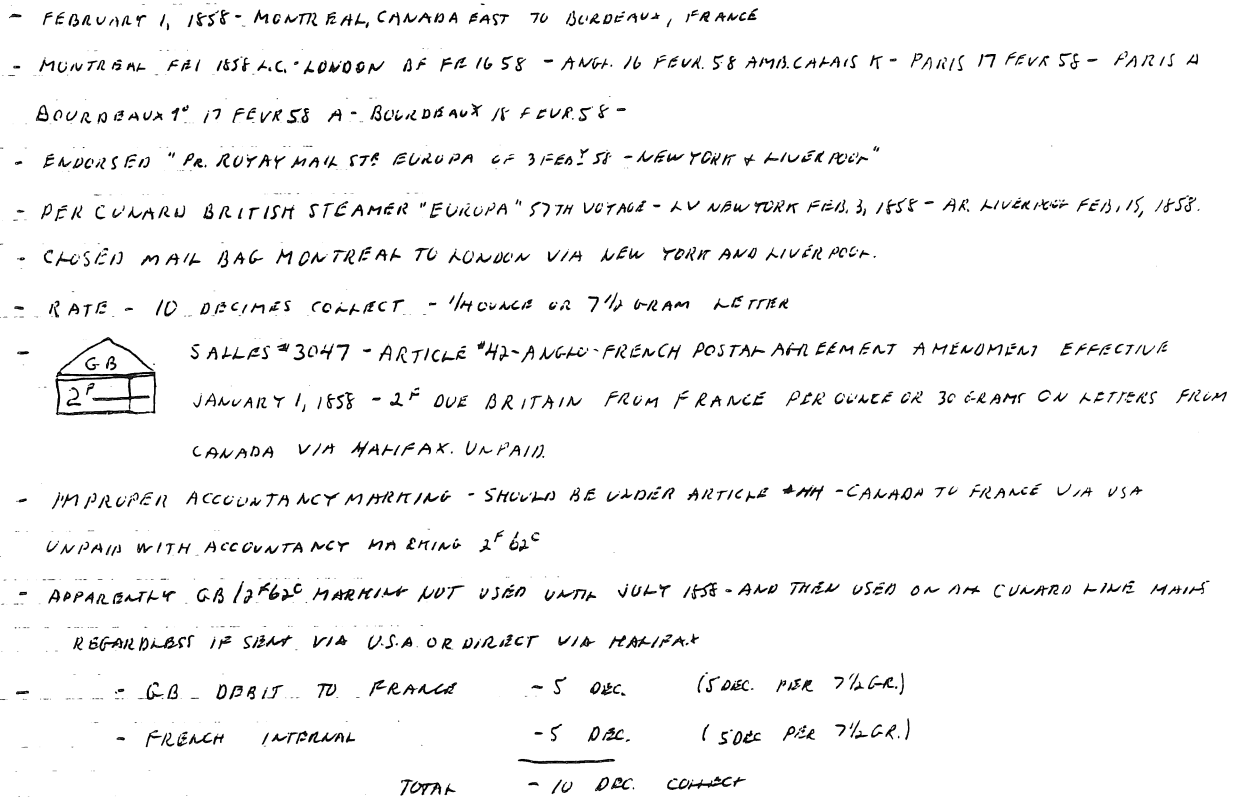 - FEBRUARY 1, 1858 - MONTREAL, CANADA EAST TO BORDEAUX, FRANCE
- MONTREAL FE 1 1858 L.C. - LONDON BF FE 16 58 - ANGL. 16 FEVR. 58 AMB. CALAIS K - PARIS 17 FEVR 58 - PARIS A
BOURDEAUX 1° 17 FEVR 58 A - BOURDEAUX 18 FEVR. 58 -
- ENDORSED "PR. ROYAY MAIL STR EUROPA OF 3 FEBY 58 - NEW YORK & LIVERPOOL"
- PER CUNARD BRITISH STEAMER "EUROPA" 57TH VOYAGE - LV NEW YORK FEB. 3, 1858 - AR. LIVERPOOL FEB. 15, 1858.
- CLOSED MAIL BAG MONTREAL TO LONDON VIA NEW YORK AND LIVERPOOL.
- RATE - 10 DECIMES COLLECT - 1/4 OUNCE OR 7 1/2 GRAM LETTER
- GB 2F SALLES #3047 - ARTICLE #42 - ANGLO-FRENCH POSTAL AGREEMENT AMENDMENT EFFECTIVE
JANUARY 1, 1858 - 2F DUE BRITAIN FROM FRANCE PER OUNCE OR 30 GRAMS ON LETTERS FROM
CANADA VIA HALIFAX. UNPAID.
- IMPROPER ACCOUNTANCY MARKING - SHOULD BE UNDER ARTICLE #44 - CANADA TO FRANCE VIA USA
UNPAID WITH ACCOUNTANCY MARKING 2F 62C
- APPARENTLY GB/2F62C MARKING NOT USED UNTIL JULY 1858 - AND THEN USED ON ALL CUNARD LINE MAILS
REGARDLESS IF SENT VIA U.S.A OR DIRECT VIA HALIFAX
- - GB DEBIT TO FRANCE - 5 DEC. (5 DEC. PER 7 1/2 GR.)
- FRENCH INTERNAL - 5 DEC. (5 DEC PER 7 1/2 GR.)
TOTAL - 10 DEC. COLLECT